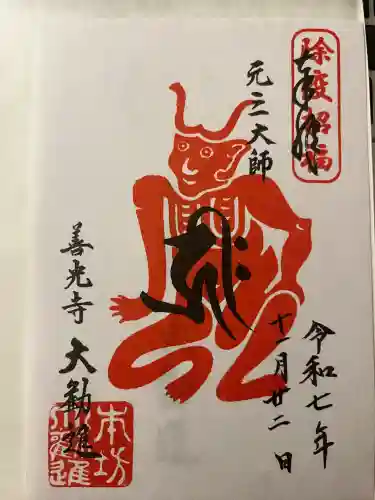 奉拝
除疫招福
元三大師
善光寺
大勧進
令和七年
十一月廿二日
本坊
大勧進